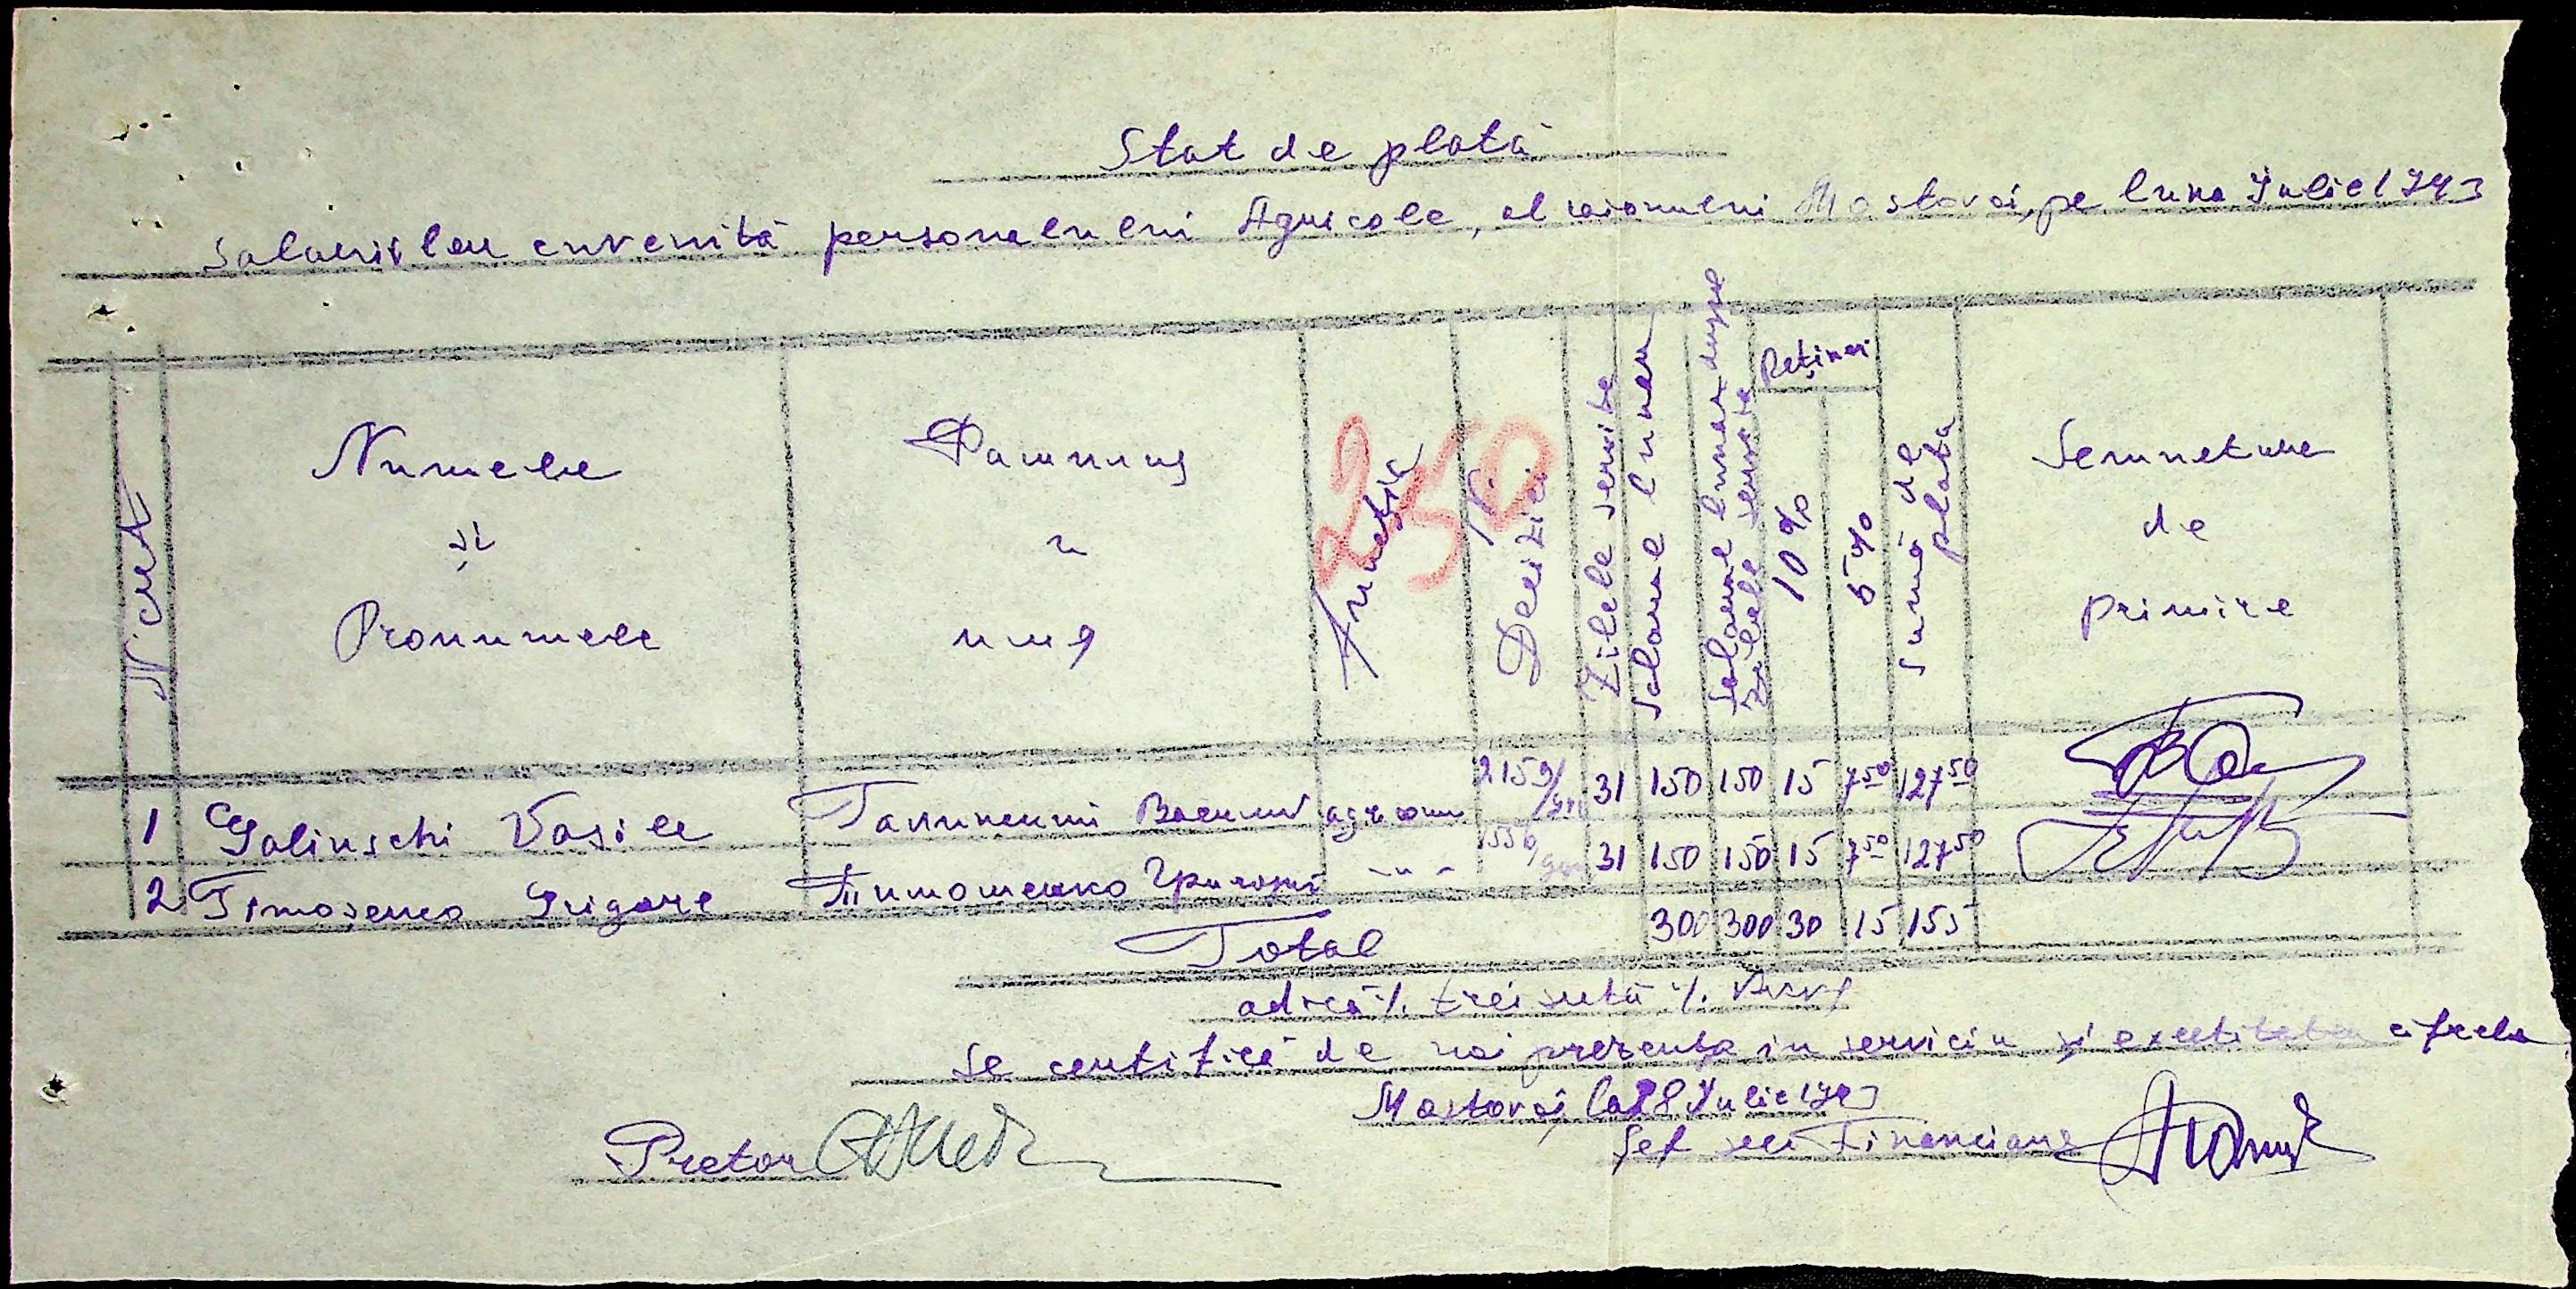 Stat de plată
Salariilor cuvenită personalului Agricole, al raionului Mostovoi, pe luna Iulie 1943
N crt
Numele
și
Pronumele
Фамилия
и
имя
Funcția
250
Nr Decizici
Zilele servite
Salarul lunar
Salarul lunar după zilele servite
Rețineri
10%
5%
Sumă de plata
Semnetura
de
primire
1 Galinschi Vasile Галинский Василий agronom 2159/ 31 150 150 15 7 50 127 50
2 Timoșenco Grigore Тимошенко Григорий -"- 1556/ 31 150 150 15 7 50 127 50
Total 300 300 30 15 155
adică ./. trei sută ./.
Se certifică de noi prezența in serviciu și exectitatea cifrela
Mostovoi, la 28 Iulie 1943
Pretor
Șef seci Financiare